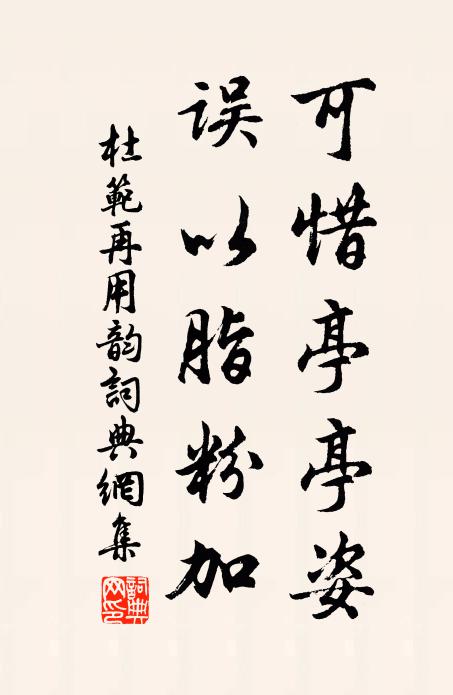 可惜亭亭姿
误以脂粉加
杜範再用韵詞典網集
詞典網印